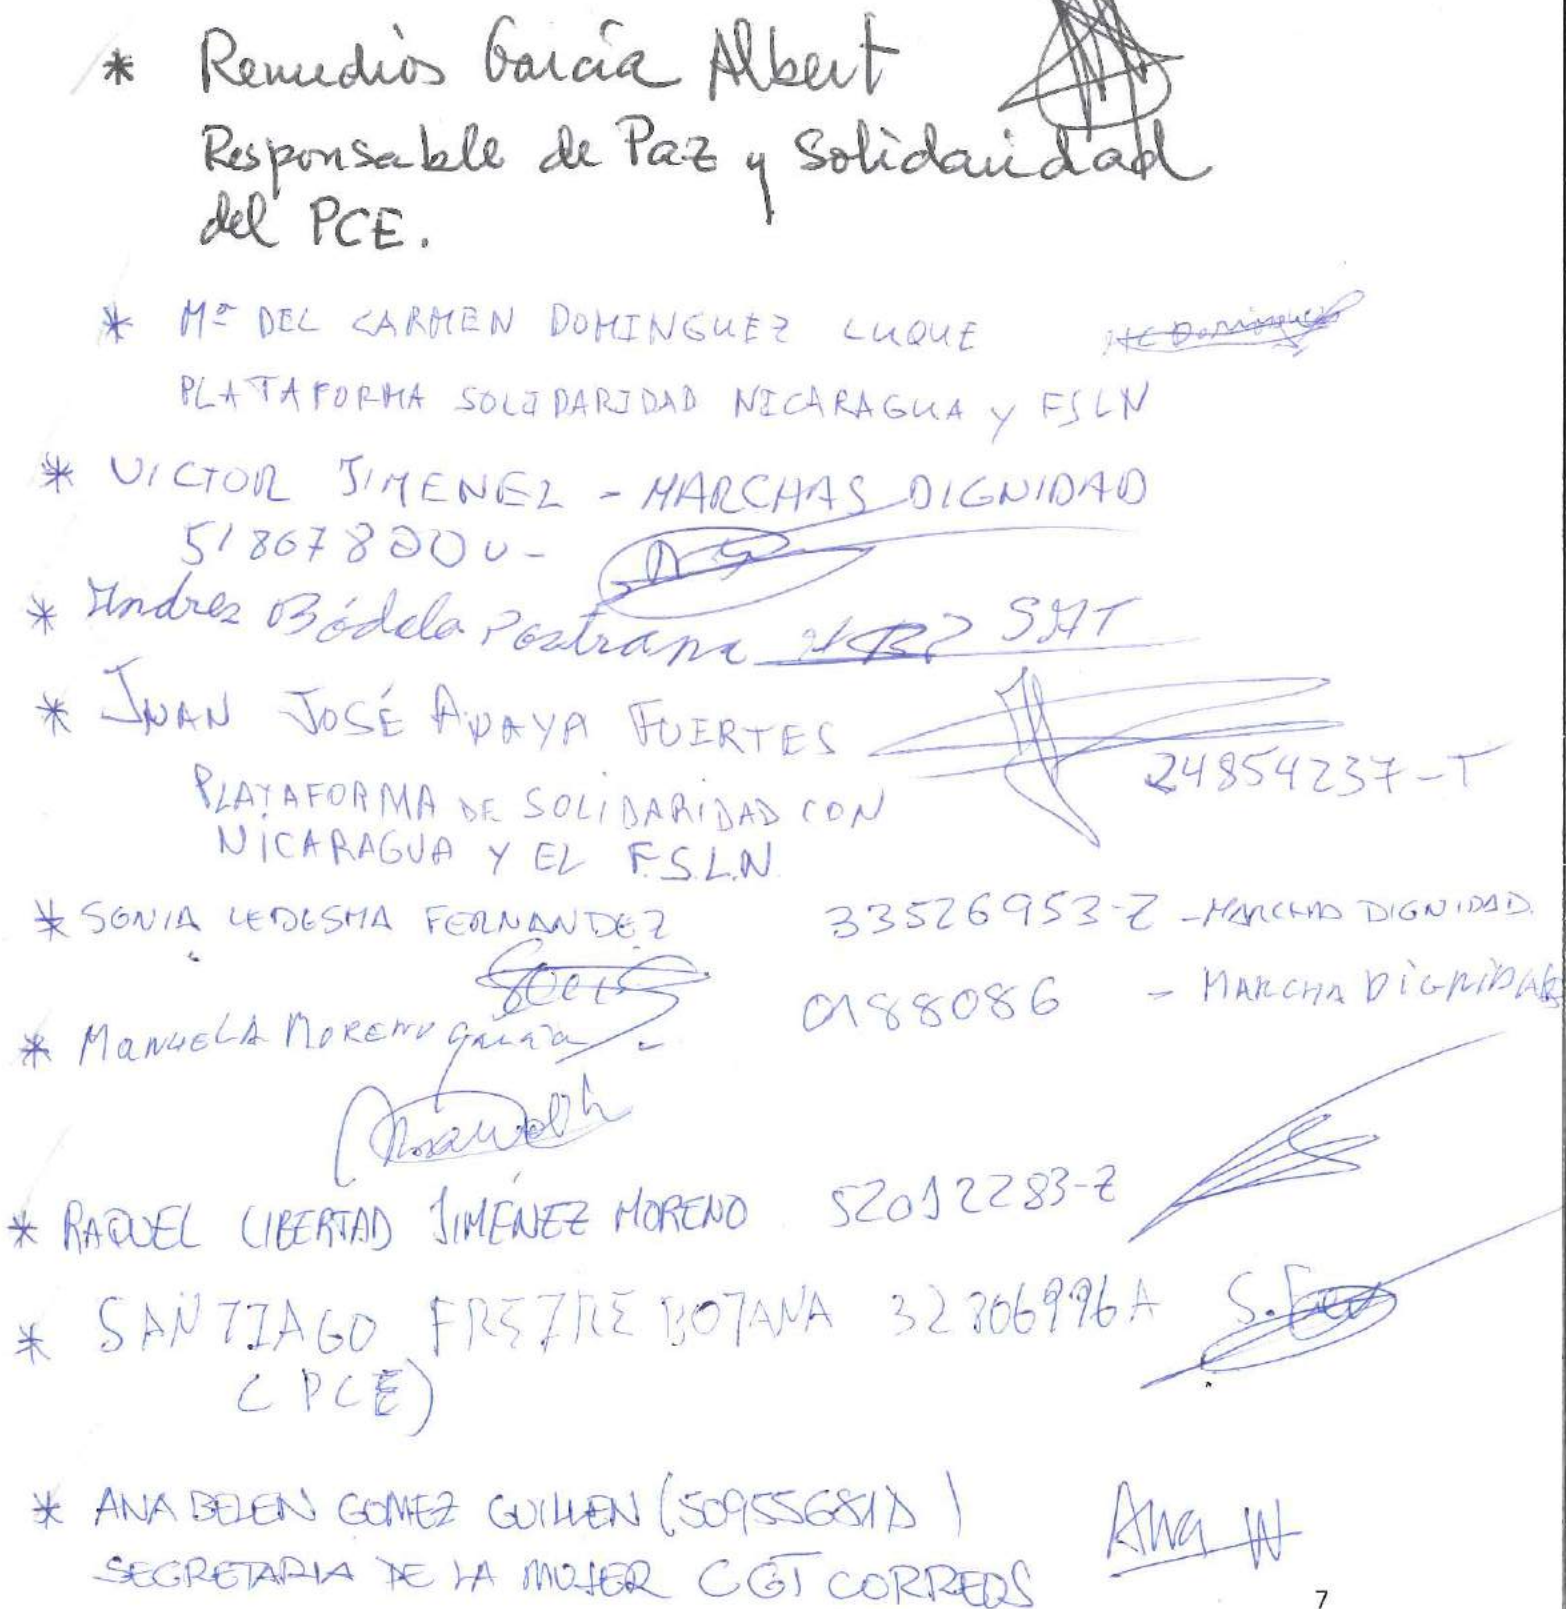 * Remedios García Albert
Responsable de Paz y Solidaridad
del PCE.
* Mª DEL CARMEN DOMINGUEZ LUQUE
PLATAFORMA SOLIDARIDAD NICARAGUA y FSLN
* VICTOR JIMENEZ - MARCHAS DIGNIDAD
* Andres Bódalo Pastrana
* JUAN JOSÉ APAYA FUERTES
24854237-T
PLATAFORMA DE SOLIDARIDAD CON
NICARAGUA Y EL F.S.L.N.
* SONIA LEDESMA FERNANDEZ 33526953-Z - MARCHAS DIGNIDAD.
* MANUELA MORENO García 0188086 - MARCHA DIGNIDAD
* RAQUEL LIBERTAD JIMÉNEZ MORENO 52012283-Z
* SANTIAGO FREIRE BOTANA 32806996A
(PCE)
* ANA BELEN GOMEZ GUILLEN (50955681D)
SEGRETARIA DE LA MUJER CGT CORREOS
7